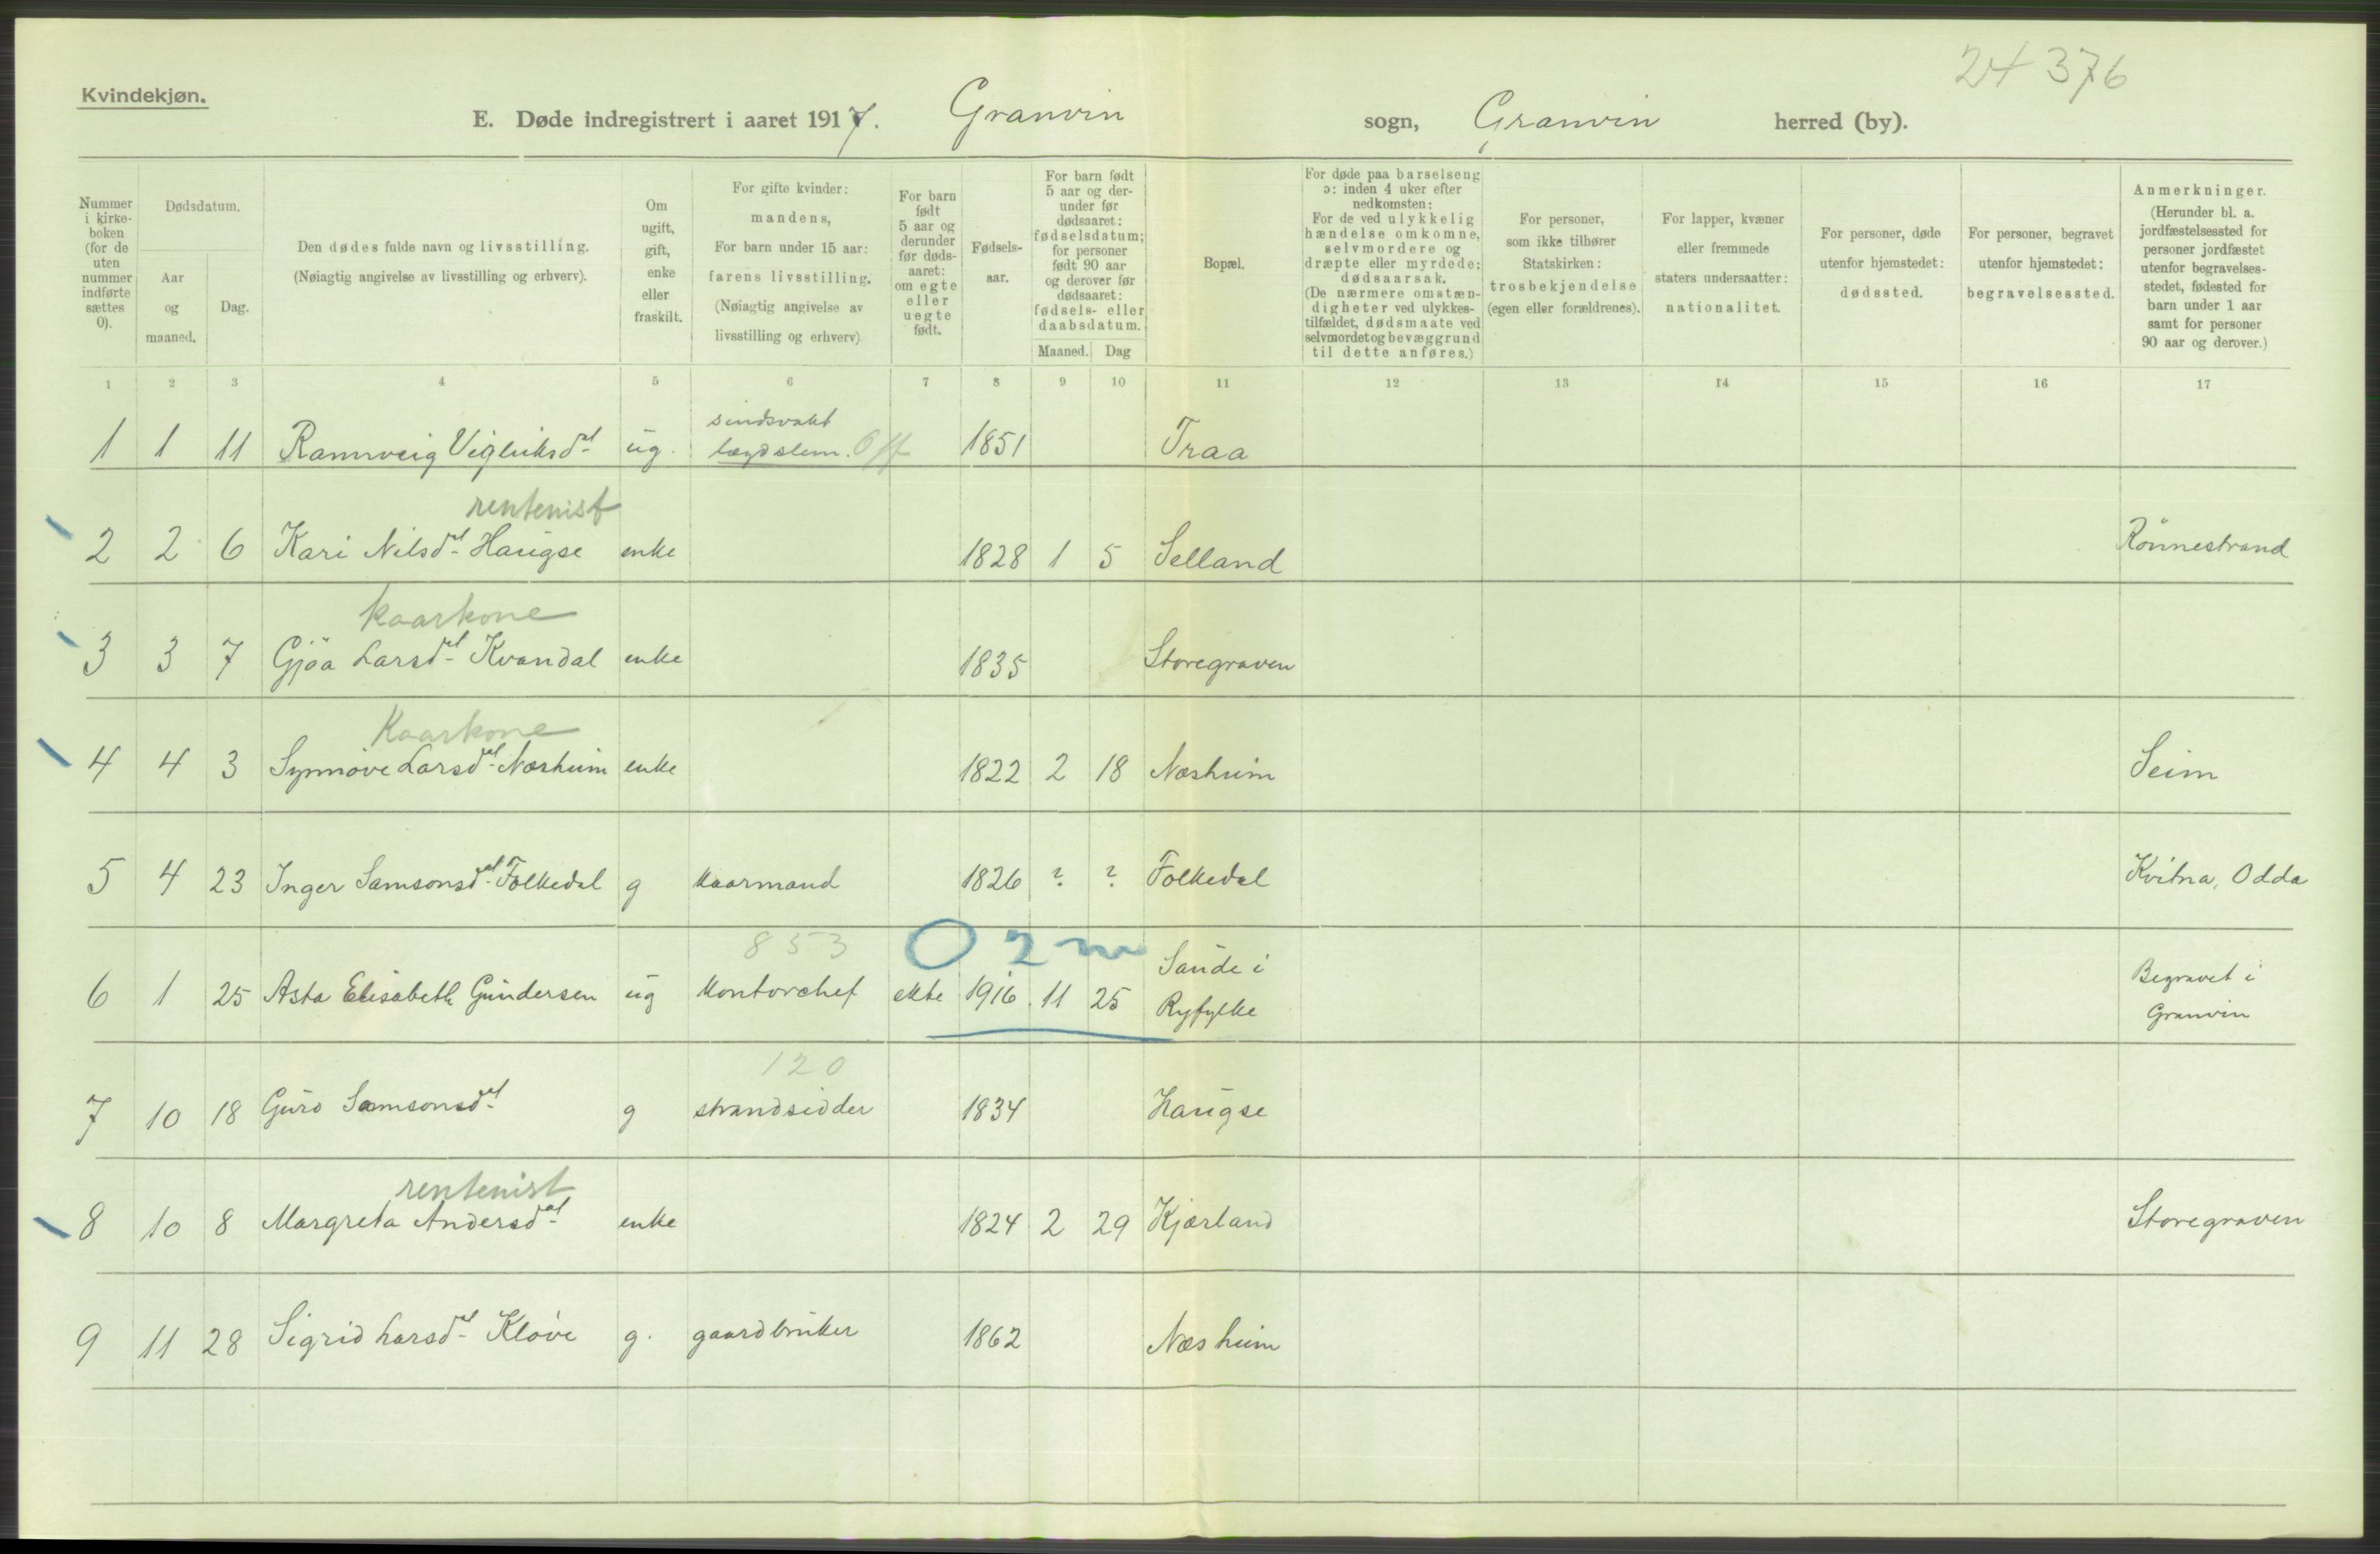 24 376
Kvindekjøn.
E. Døde indregistrert i aaret 1917. Granvin sogn, Granvin herred (by).
Nummer i kirke-boken (for de uten nummer indførte sættes 0).
Dødsdatum.
Aar og maaned.
Dag.
Den dødes fulde navn og livsstilling.
(Nøiagtig angivelse av livsstilling og erhverv).
Om ugift, gift, enke eller fraskilt.
For gifte kvinder: mandens,
For barn under 15 aar: farens livsstilling.
(Nøiagtig angivelse av livsstilling og erhverv)
For barn født 5 aar og derunder før døds-aaret: om egte eller uegte født.
Fødsels-aar.
For barn født 5 aar og der-under før dødsaaret: fødselsdatum; for personer født 90 aar og derover før dødsaaret: fødsels- eller daabsdatum.
Maaned. Dag
Bopæl.
For døde paa barselseng ɔ: inden 4 uker efter nedkomsten: For de ved ulykkelig hændelse omkomne, selvmordere og dræpte eller myrdede: dødsaarsak. (De nærmere omstæn-digheter ved ulykkes-tilfældet, dødsmaate ved selvmordet og bevæggrund til dette anføres.)
For personer, som ikke tilhører Statskirken: trosbekjendelse (egen eller forældrenes).
For lapper, kvæner eller fremmede staters undersaatter: nationalitet.
For personer, døde utenfor hjemstedet: dødssted.
For personer, begravet utenfor hjemstedet: begravelsessted.
Anmerkninger. (Herunder bl. a. jordfæstelsessted for personer jordfæstet utenfor begravelses-stedet, fødested for barn under 1 aar samt for personer 90 aar og derover.)
1 2 3 4 5 6 7 8 9 10 11 12 13 14 15 16 17
sindsvakt
1 1 11 Rannveig Vigleiksdtl ug. lægdslem. Off 1851 Traa
rentenist
2 2 6 Kari Nilsdtl Haugse enke 1828 1 5 Selland Rönnestrand
kaarkone
3 3 7 Gjöa Larsdtl Kvandal enke 1835 Storegraven
Kaarkone
4 4 3 Synnöve Larsdtl Næsheim enke 1822 2 18 Næsheim Seim
5 4 23 Inger Samsonsdtl Folkedal g kaarmand 1826 ? ? Folkedal Kvitna, Odda
853 0 2 m
6 1 25 Asta Elisabeth Gundersen ug kontorchef ekte 1916 11 25 Sande i Ryfylke Begravet i Granvin
120
7 10 18 Guro Samsonsdtl g strandsidder 1834 Haugse
rentenist
8 10 8 Margreta Andersdtl enke 1824 2 29 Kjærland Storegraven
9 11 28 Sigrid Larsdtl Klöve g. gaardbruker 1862 Næsheim